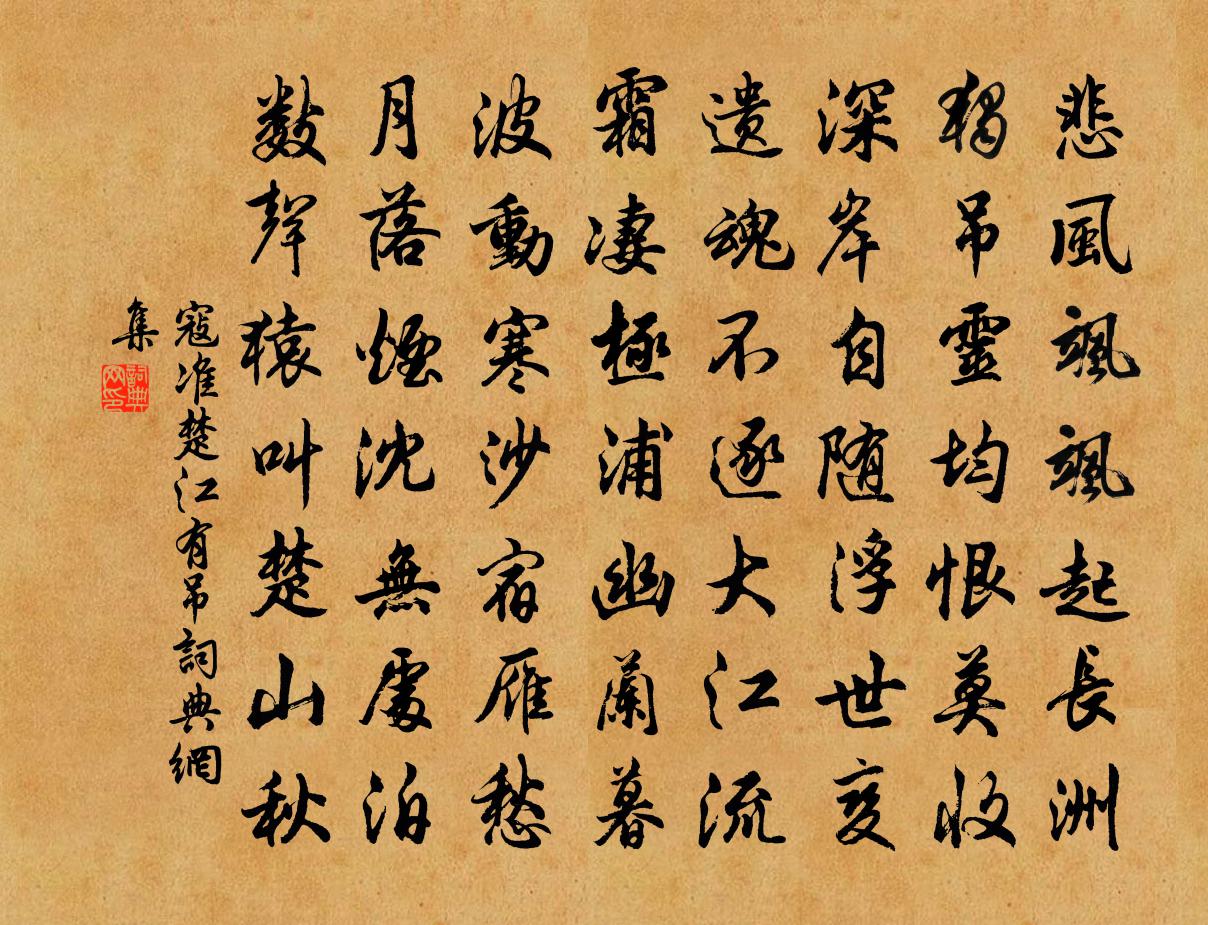 悲風颯颯起長洲
獨吊靈均恨莫收
深岸自随浮世变
遗魂不逐大江流
霜凄極浦幽蘭暮
波動寒沙宿雁愁
月落煙沈無處泊
数聲猿叫楚山秋
寇准楚江有吊詞典網
集
詞典
网印